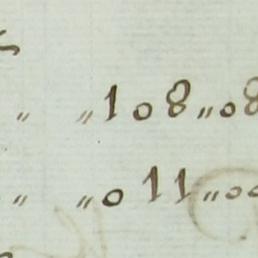 „ „108„08
„ „011„00